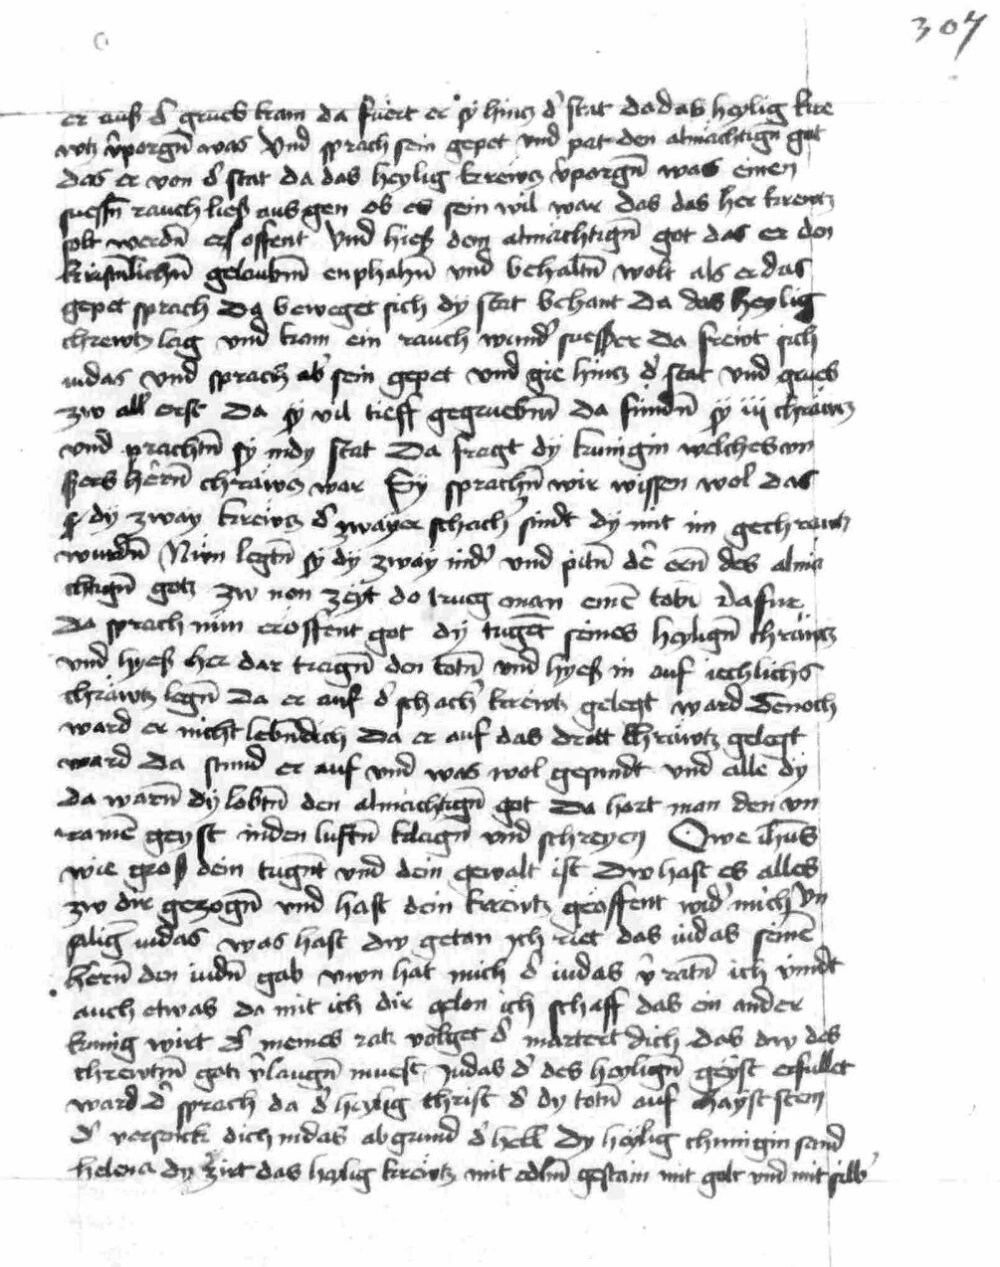 307
er auß d' grueb kam da fuert er sy hincz d' stat da das heylig kre
wtz v'porgn̄ was Vnd sprach sein gepet vnd pat den almachtign got
das er von d' stat da das heylig krewtz v'porgn̄ was einen
suessn̄ rauch ließ aus gen ob es sein wil war das das her krewtz
solt werdn̄ eroffent Vnd hieß dem almachtign̄ got das er den
kristnlichn̄ gelaubm̄ enphahn̄ vnd behaltn̄ wolt als er das
gepet sprach Da beweget sich dy stat behant Da das heylig
chrewtz lag vnd kam ein rauch wund' suesser Da frewt sich
iudas Vnd sprach ab' sein gepet vnd gie hincz d' stat vnd grueb
zw all' erst Da sy vil tieff gegruebm̄ da fundn̄ sy iij chrawtz
vnd prachtn̄ sy in dy stat Da fragt dy kunigin welches vn
sers hērn̄ chrawtz war Sy sprachn̄ wir wissen wol das
dy zway krewtz d' zwayer schach' sindt dy mit im gechrewtz
wurdn̄ Nun legtn̄ sy dy zway nid' vnd pitn̄ dē ern̄ des alma
chtign̄ gotz zw non zeyt do trueg man einē totn dafur
Da sprach nun eroffent got dy tugēt seines heylign̄ chrawtz
vnd hyeß her dar tragn̄ den totn̄ vnd hyeß in auf iechlichs
chrawtz legn̄ Da er auf d' schach' krewtz gelegt ward Dennoch
ward er nicht lebndich Da er auf das dritt chrawtz gelegt
ward Da stund er auf vnd was wol gesundt vnd alle dy
da warn̄ dy lobtn̄ den almachtign̄ got Da hort man den vn
rainē geyst in den luftn̄ klagn̄ vnd schreyen Owe ih̄us
wie groß dein tugnt vnd dein gewalt ist Dw hast es alles
zw dir gezogn̄ vnd hast dein krewtz geoffent wid' mich Vn
salig iudas was hast dw getan ich riet das iudas seinē
hērn̄ den iudn̄ gab nun hat mich d' iudas v'ratn̄ ich vindt
auch etwas da mit ich dir gelon ich schaff das ein ander
kunig wirt d' meines ratz volget d' martert dich das dw des
chrewtm̄ gotz v'laugn̄ muest Judas d' des heylign̄ geyst erfullet
ward d' sprach da d' heylig christ d' dy totn̄ auf hayst sten
d' versenck dich in das abgrund d' hell Dy heylig chunigin sand
helena dy ziert das heylig krewtz mit edlm̄ gestain mit golt vnd mit silb'